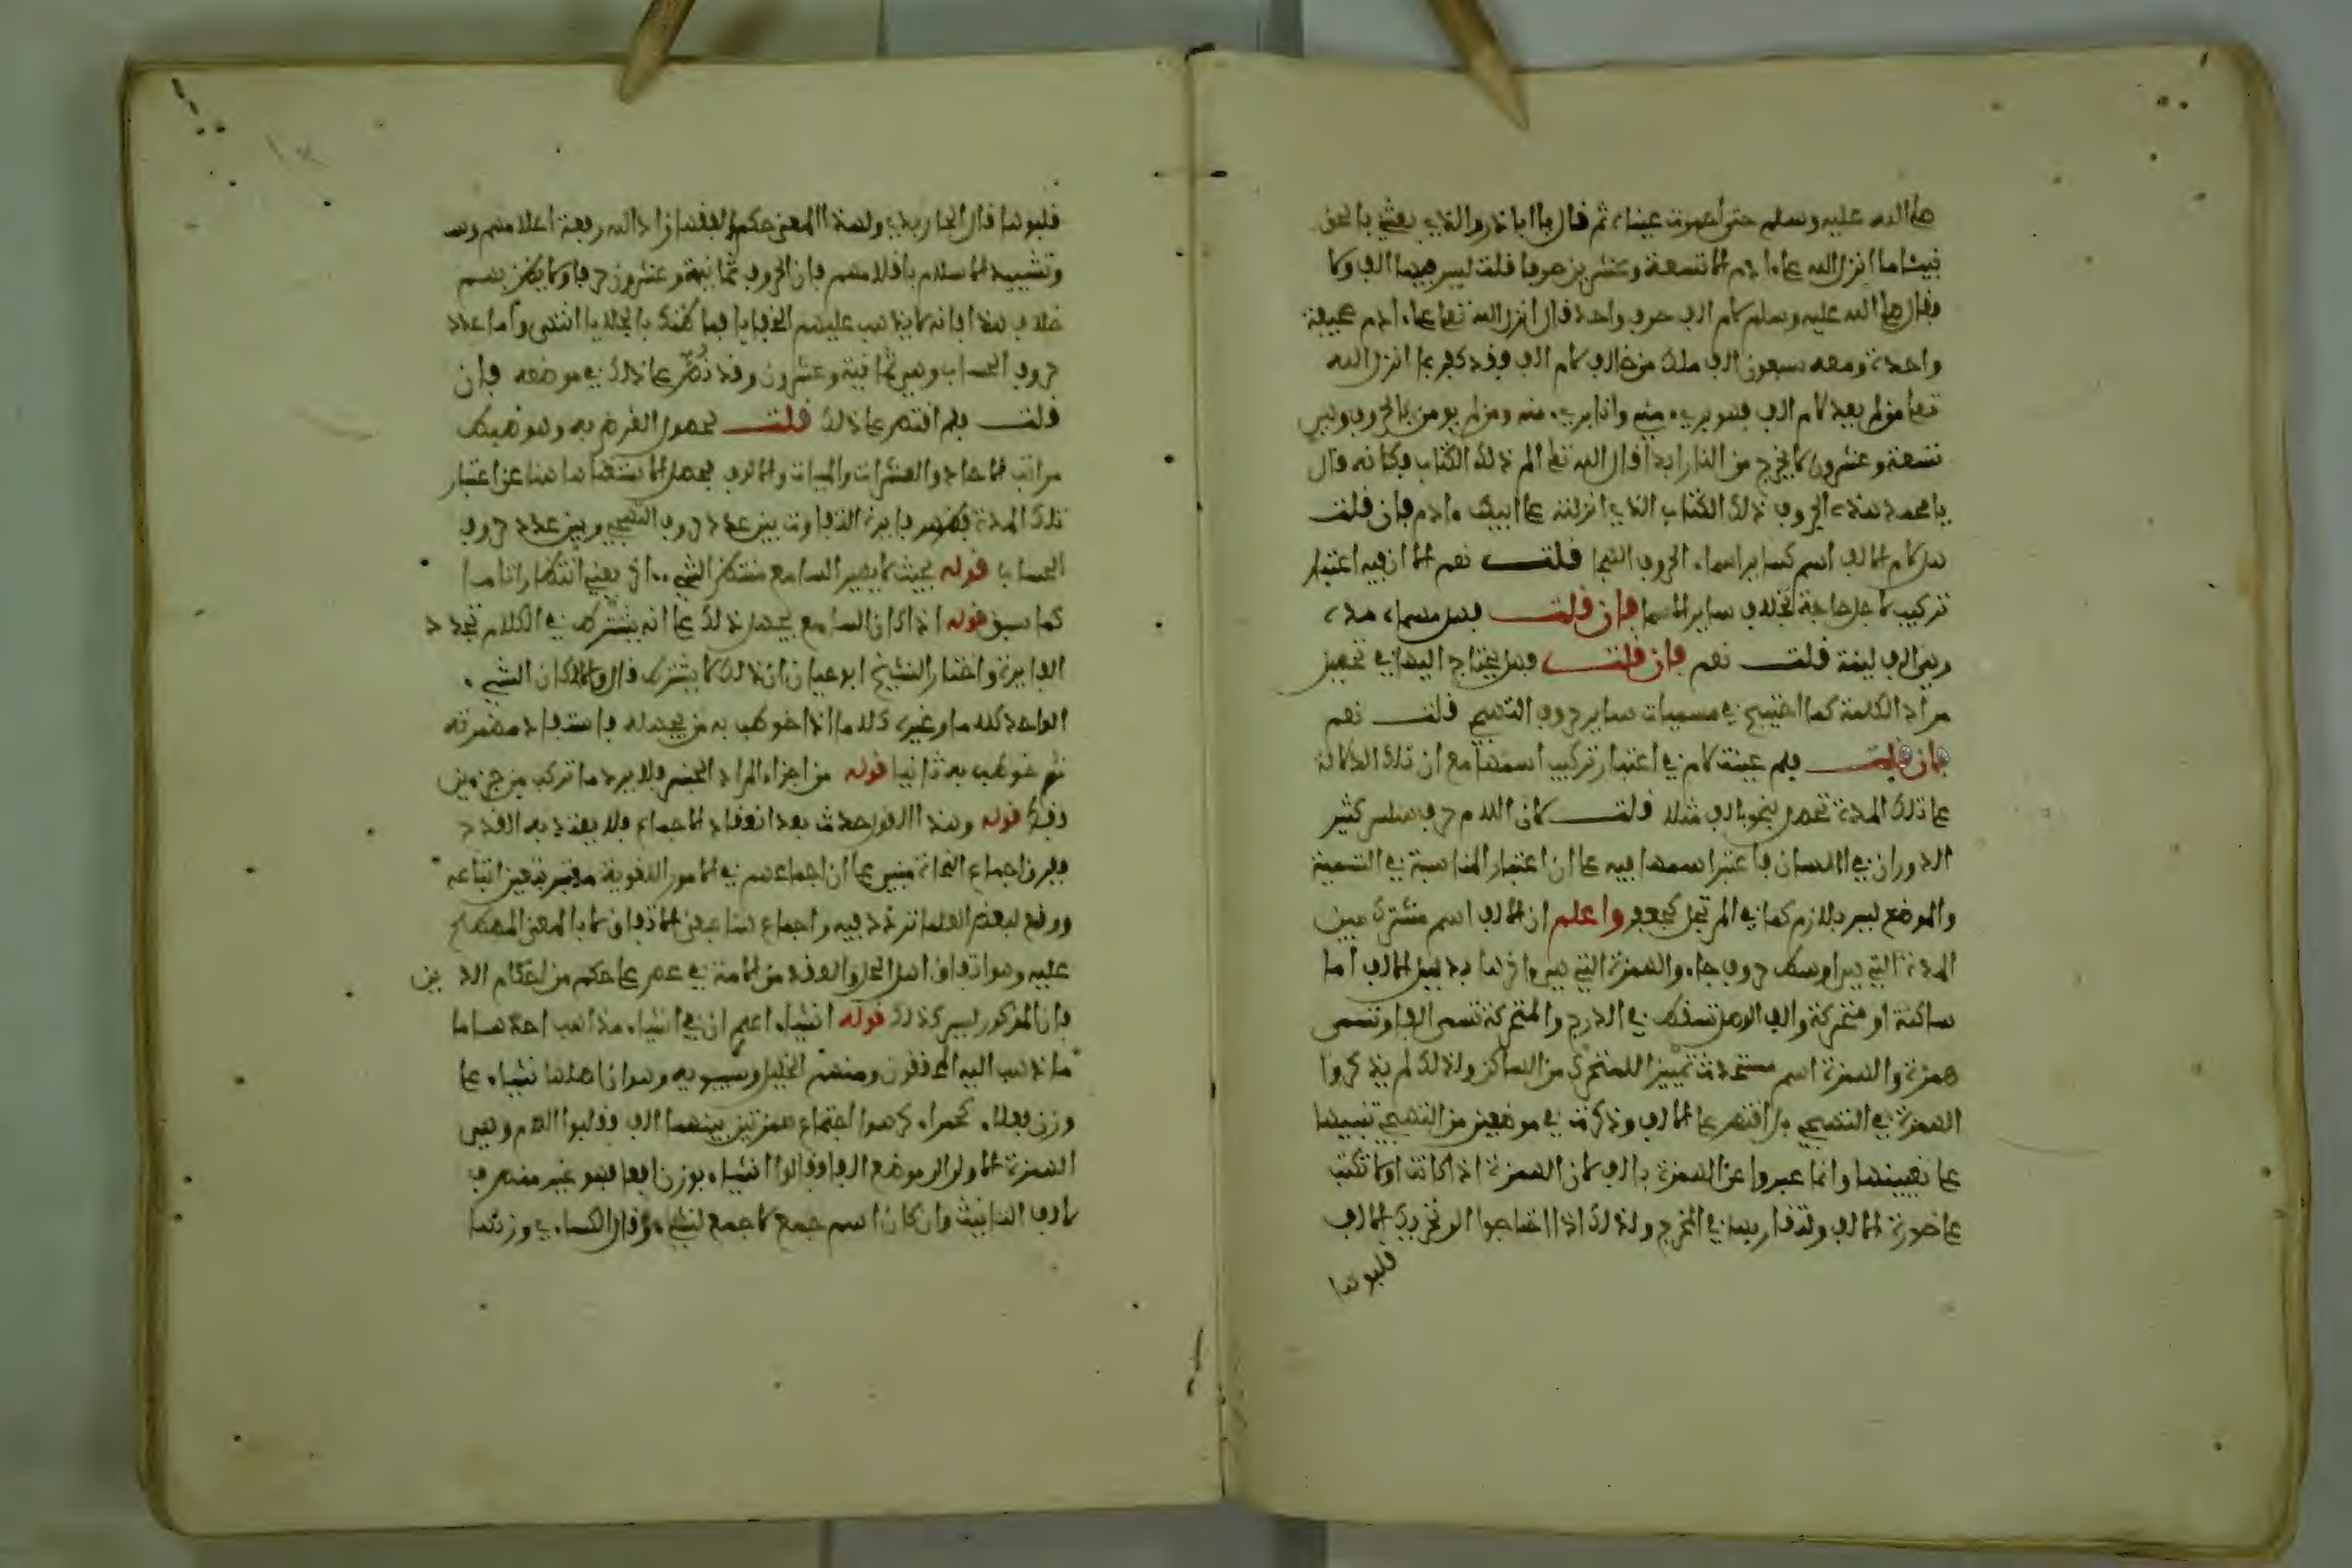 صلى الله عليه وسلم حتى احمرت عيناه ثم قال يا ابا ذر والذي بعثني بالحق
نبيا ما انزل الله على ادم الا تسعة وعشرين حرفا قلت ليس فيها الف ولا
فقال صلى الله عليه وسلم لام الف حرف واحد قال انزل الله تعلى على ادم صحيفة
واحدة ومعه سبعون الف ملك من خالف لام الف فقد كفر بما انزل الله
تعلى من لم يعد لام الف فهو بريء منه وانا بريء منه ومن لم يومن بالحروف وهي
تسعة وعشرون لا يخرج من النار ابدا قال الله تعلى الم ذلك الكتاب فكانه قال
يا محمد هذه الحروف ذلك الكتاب الذي انزلته على ابيك ادم فان قلت
هل لام الف اسم كساير اسماء الحروف التهجا قلت نعم الا ان فيه اعتبار
تركيب لاجل حاجة بخلاف ساير الاسما فان قلت فهل مسماه مدة
وهي الف لينة قلت نعم فان قلت فهل يحتاج اليها في تحصيل
مراد الكلمة كما احتيج في مسميات ساير حروف التهجي قلت نعم
فان قلت فلم عينت لام في اعتبار تركيب اسمها مع ان تلك الدلالة
على تلك المدة تحصل بنحو باالف مثلا قلت لان اللام حرف سلس كثير
الدوران في اللسان فاعتبر اسمها فيه على ان اعتبار المناسبة في التسمية
والموضع ليس بلازم كما في المرتجل كجعفر واعلم ان الالف اسم مشترك بين
المدة التي هي اوسط حروف جاء والهمزة التي هي اخرها بدليل الالف اما
ساكنة او متحركة والف الوصل تسقط في الدرج والمتحركة تسمى الفا وتسمى
همزة والهمزة اسم مستحدث تمييزا للمتحرك من الساكن ولذلك لم يذكروا
الهمزة في التهجي بل اقتصر على الالف وذكرت في موضعين من التهجي تنبيها
على تعيينها وانما عبروا عن الهمزة بالف لان الهمزة اذا كانت اولا تكتب
على صورة الالف ولتقاربهما في المخرج ولذلك اذا احتاجوا الى تحريك الالف
قلبوها
قلبوها قال الجاربردي ولهذا المعنى حكم الفقها زاد الله رفعة اعلامهم
وتشييد الاسلام باقلامهم بان الحروف ثمانية وعشرون حرفا ولا يظن بهم
خلاف هذا فانه لا يذهب عليهم الخفايا فما ظنك بالجلايا انتهى واما عدد
حروف الحساب وهي ثمانية وعشرون وقد نص على ذلك في موضعه فان
قلت فلم اقتصر على ذلك قلت لحصول الغرض به وهو ضبط
مراتب الاحاد والعشرات والميات والالوف فحصل الاستغناء هنا عن اعتبار
تلك المدة فظهر فايدة التفاوت بين عدد حروف التهجي وبين عدد حروف
الحساب قوله بحيث لا يصير السامع منتظرا لشيء اخر يعني انتظارا تاما
كما سبق قوله اذا كان السامع يجهل ذلك على انه يشترط في الكلام تجدد
الفايدة واختار الشيخ ابو حيان ان ذلك لا يشترط قال والا لكان الشيء
الواحد كلاما وغير كلام اذا خوطب به من يجهله فاستفاد مضمونه
ثم خوطب به ثانيا قوله من اجزاء المراد الجنس فلا يرد ما تركب من جزءين
فقط قوله وهذا القول حدث بعد انعقاد الاجماع فلا يعتد به القدح
بخرق اجماع النحاة مبني على ان اجماعهم في الامور اللغوية معتبر يتعين اتباعه
ووقع لبعض العلما تردد فيه واجماع هنا بمعنى الاتفاق لا بالمعنى المصطلح
عليه وهو اتفاق اهل الحل والعقد من الامة في عصر على حكم من احكام الدين
فان المذكور ليس كذلك قوله اشياء اعلم ان في اشياء مذاهب احدها ما
ما ذهب اليه المحققون ومنهم الخليل وسيبويه وهو ان اصلها شيئاء على
وزن فعلاء كحمراء كرهوا اجتماع همزتين بينهما الف فقلبوا اللام وهي
الهمزة الاولى الى موضع الفا وقالوا اشياء بوزن لفعا فهو غير منصرف
لالف التانيث وان كان اسم جمع لا جمع لشيء وقال الكساءي وزنها